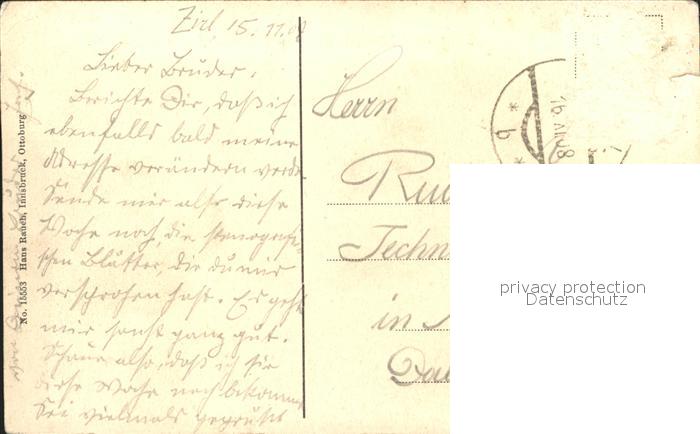 Zirl, 15. 11. 08
Lieber Bruder.
Berichte Dir, daß ich
ebenfalls bald meine
Adresse verändern werde
Sende mir also diese
Woche noch, die stenografi-
schen Blätter, die du mir
versprochen hast. Es geht
mir sonst ganz gut.
Schaue also, daß ich sie
diese Woche noch bekomme
Sei vielmals gegrüßt
von Deinem Bruder
No. 15553 Hans Rauch, Innsbruck, Ottoburg
Herrn
Techn
in
* b
*
16.XI.08
privacy protection
Datenschutz